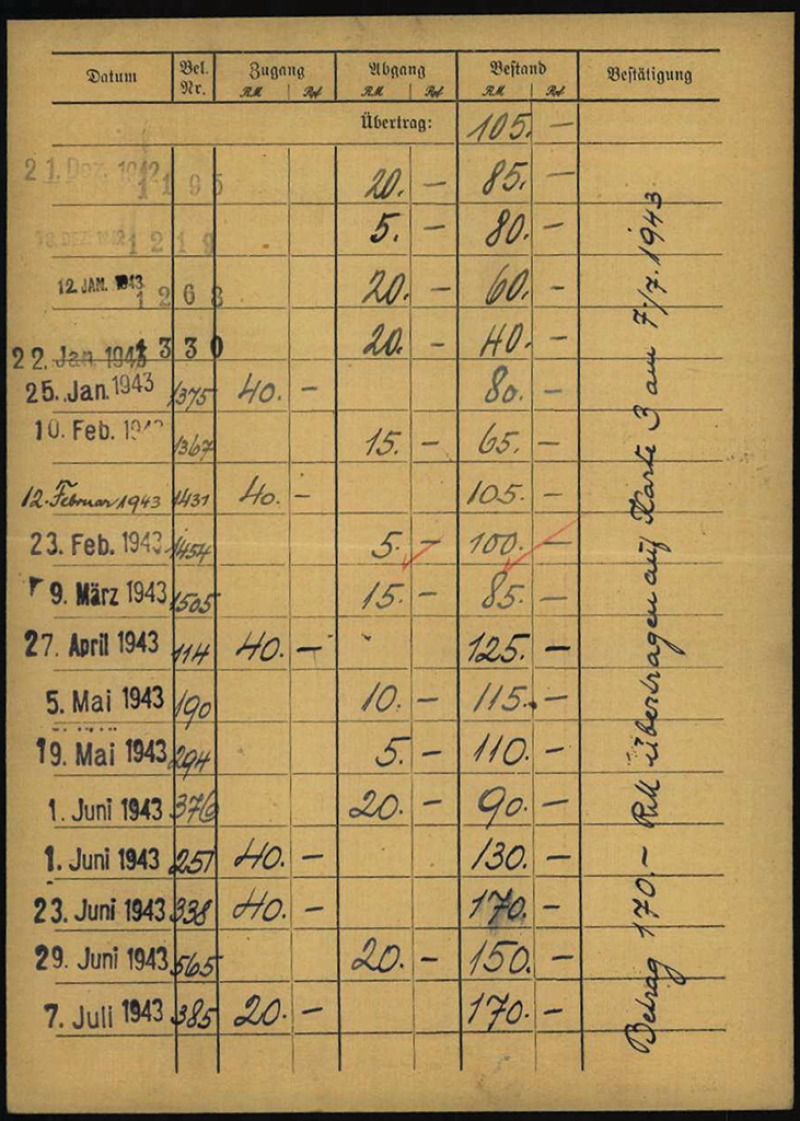 Datum Bel. Nr. Zugang Abgang Bestand Bestätigung
RM Rpf RM Rpf RM Rpf
Übertrag: 105. —
21. Dez. 1942 1195 20. — 85. —
DEZ. 1942 1219 5. — 80. —
12. JAN. 1943 1268 20. — 60. —
22. Jan. 1943 1330 20. — 40. —
25. Jan. 1943 1375 40. — 80. —
10. Feb. 1943 1367 15. — 65. —
12. Februar 1943 1431 40. — 105. —
23. Feb. 1943 1454 5. — 100. —
9. März 1943 1505 15. — 85. —
27. April 1943 114 40. — 125. —
5. Mai 1943 190 10. — 115. —
19. Mai 1943 294 5. — 110. —
1. Juni 1943 376 20. — 90. —
1. Juni 1943 251 40. — 130. —
23. Juni 1943 338 40. — 170. —
29. Juni 1943 565 20. — 150. —
7. Juli 1943 385 20. — 170. —
Betrag 170.— RM übertragen auf Karte 3 am 7./7. 1943